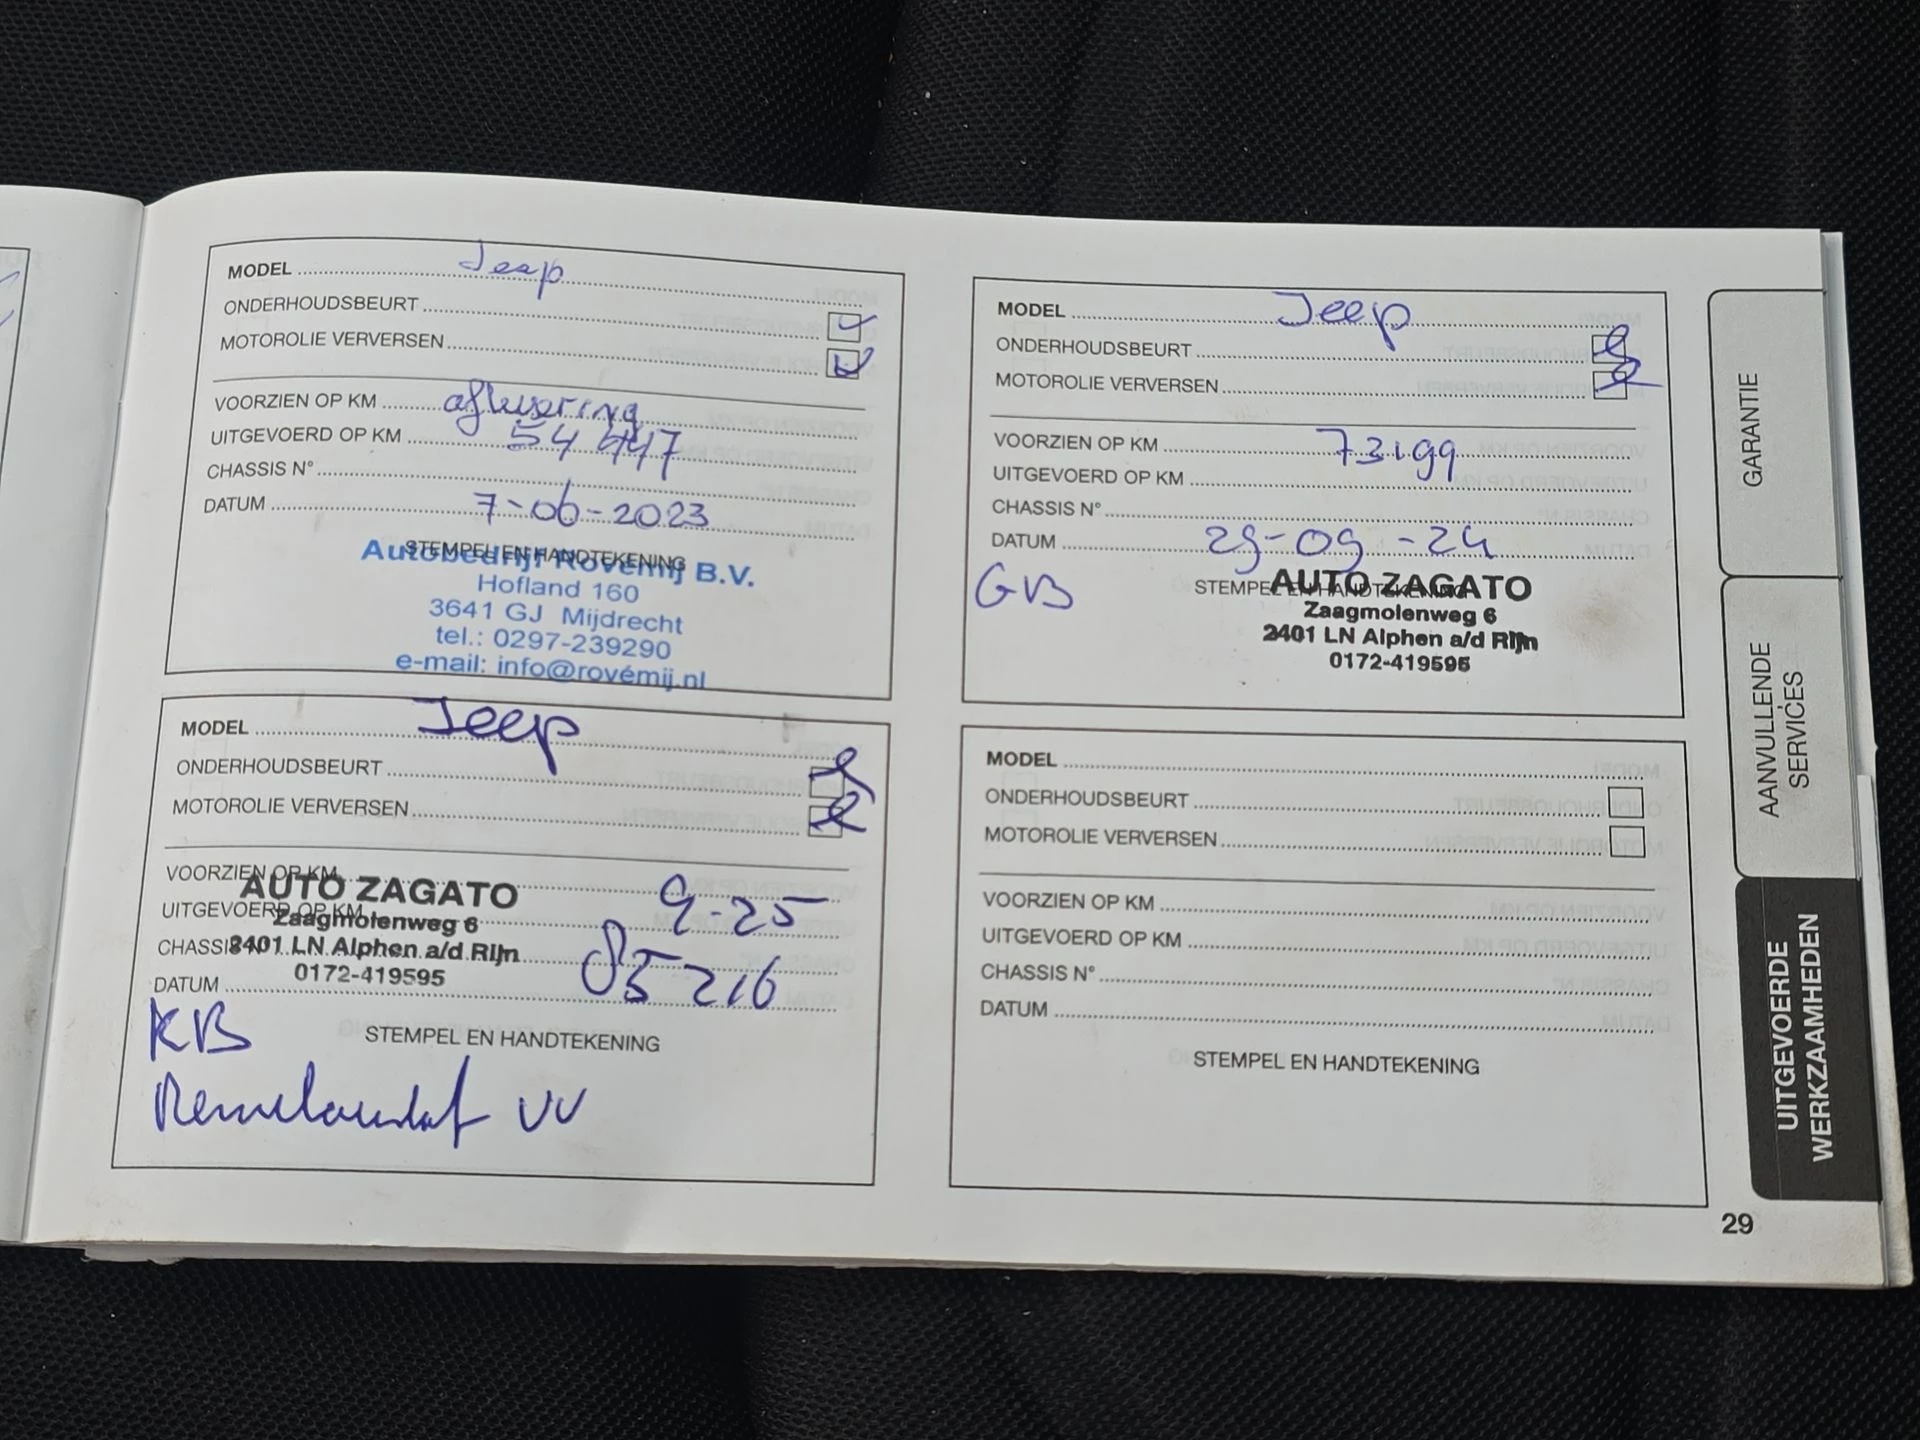 MODEL Jeep
ONDERHOUDSBEURT
MOTOROLIE VERVERSEN
VOORZIEN OP KM aflevering
UITGEVOERD OP KM 54 447
CHASSIS N°
DATUM 7-06-2023
STEMPEL EN HANDTEKENING
Autobedrijf Rovémij B.V.
Hofland 160
3641 GJ Mijdrecht
tel.: 0297-239290
e-mail: info@rovémij.nl
MODEL Jeep
ONDERHOUDSBEURT
MOTOROLIE VERVERSEN
VOORZIEN OP KM 73199
UITGEVOERD OP KM
CHASSIS N°
DATUM 29-09-24
GB
STEMPEL EN HANDTEKENING
AUTO ZAGATO
Zaagmolenweg 6
2401 LN Alphen a/d Rijn
0172-419595
MODEL Jeep
ONDERHOUDSBEURT
MOTOROLIE VERVERSEN
VOORZIEN OP KM 9-25
UITGEVOERD OP KM
CHASSIS N°
DATUM 85216
AUTO ZAGATO
Zaagmolenweg 6
2401 LN Alphen a/d Rijn
0172-419595
KB
STEMPEL EN HANDTEKENING
VV
MODEL
ONDERHOUDSBEURT
MOTOROLIE VERVERSEN
VOORZIEN OP KM
UITGEVOERD OP KM
CHASSIS N°
DATUM
STEMPEL EN HANDTEKENING
GARANTIE
AANVULLENDE
SERVICES
UITGEVOERDE
WERKZAAMHEDEN
29